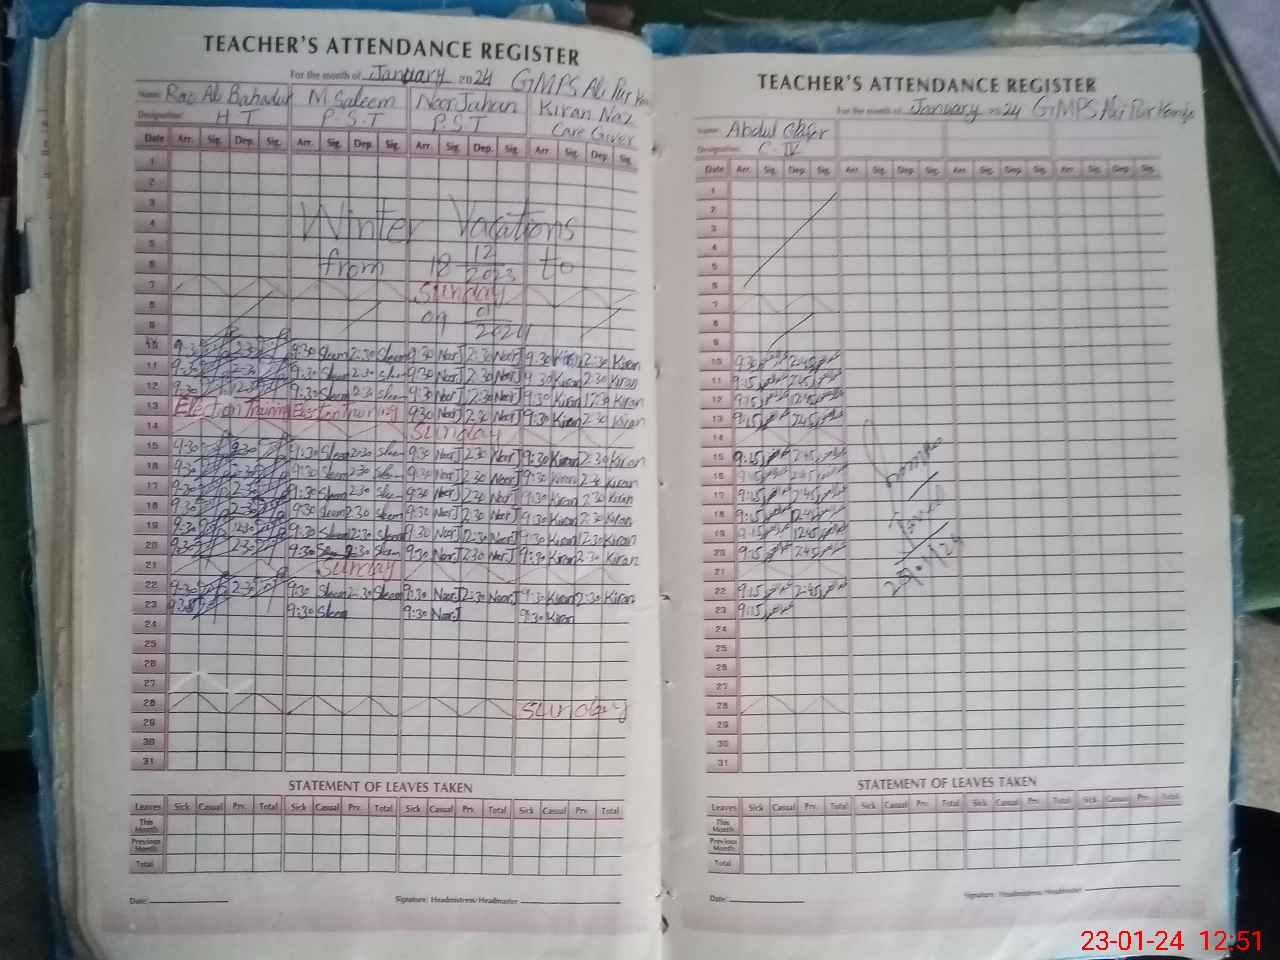 TEACHER'S ATTENDANCE REGISTER
For the month of January 2024 GMPS Ali Pur
Name Rao Ab Bahadur M Saleem Noor Jahan Kiran Naz
Designation H T P.S.T P.S.T Care Giver
Date Arr. Sig. Dep. Sig. Arr. Sig. Dep. Sig. Arr. Sig. Dep. Sig. Arr. Sig. Dep. Sig.
1
2
3
4 Winter Vacations
5
6 from 18 12/2023 to
7 Sunday
8 09 01/2024
9
10 9:30 2:30 9:30 Sleem 2:30 Sleem 9:30 Noor J 2:30 Noor J 9:30 Kiran 2:30 Kiran
11 9:30 2:30 9:30 Sleem 2:30 Sleem 9:30 Noor J 2:30 Noor J 9:30 Kiran 2:30 Kiran
12 9:30 9:30 Sleem 2:30 Sleem 9:30 Noor J 2:30 Noor J 9:30 Kiran 12:30 Kiran
13 Election Training Election Training 9:30 Noor J 2:30 Noor J 9:30 Kiran 2:30 Kiran
14 Sunday
15 9:30 2:30 9:30 Sleem 2:30 Sleem 9:30 Noor J 2:30 Noor J 9:30 Kiran 2:30 Kiran
16 9:30 2:30 9:30 Sleem 2:30 Sleem 9:30 Noor J 2:30 Noor J 9:30 Kiran 2:30 Kiran
17 9:30 2:30 9:30 Sleem 2:30 Sleem 9:30 Noor J 2:30 Noor J 9:30 Kiran 2:30 Kiran
18 9:30 2:30 9:30 Sleem 2:30 Sleem 9:30 Noor J 2:30 Noor J 9:30 Kiran 2:30 Kiran
19 9:30 12:30 9:30 Sleem 12:30 Sleem 9:30 Noor J 12:30 Noor J 9:30 Kiran 12:30 Kiran
20 9:30 2:30 9:30 Sleem 2:30 Sleem 9:30 Noor J 2:30 Noor J 9:30 Kiran 2:30 Kiran
21 Sunday
22 9:30 2:30 9:30 Sleem 2:30 Sleem 9:30 Noor J 2:30 Noor J 9:30 Kiran 2:30 Kiran
23 9:30 Sleem 9:30 Noor J 9:30 Kiran
24
25
26
27
28 Sunday
29
30
31
STATEMENT OF LEAVES TAKEN
Leaves Sick Casual Prv. Total Sick Casual Prv. Total Sick Casual Prv. Total Sick Casual Prv. Total
This Month
Previous Month
Total
Date: Signature: Headmistress/Headmaster
TEACHER'S ATTENDANCE REGISTER
For the month of January 2024 GMPS Ali Pur
Name Abdul
Designation C-IV
Date Arr. Sig. Dep. Sig. Arr. Sig. Dep. Sig. Arr. Sig. Dep. Sig. Arr. Sig. Dep. Sig.
1
2
3
4
5
6
7
8
9
10 9:30 2:45
11 9:15 2:45
12 9:15 12:45
13 9:15 2:45
14
15 9:15 2:45
16 9:15 2:45
17 9:15 2:45
18 9:15 2:45
19 9:15 12:45
20 9:15 2:45
21
22 9:15 2:45
23 9:15
24
25
26
27
28
29
30
31
STATEMENT OF LEAVES TAKEN
Leaves Sick Casual Prv. Total Sick Casual Prv. Total Sick Casual Prv. Total Sick Casual Prv. Total
This Month
Previous Month
Total
Date: Signature: Headmistress/Headmaster
23-01-24 12:51